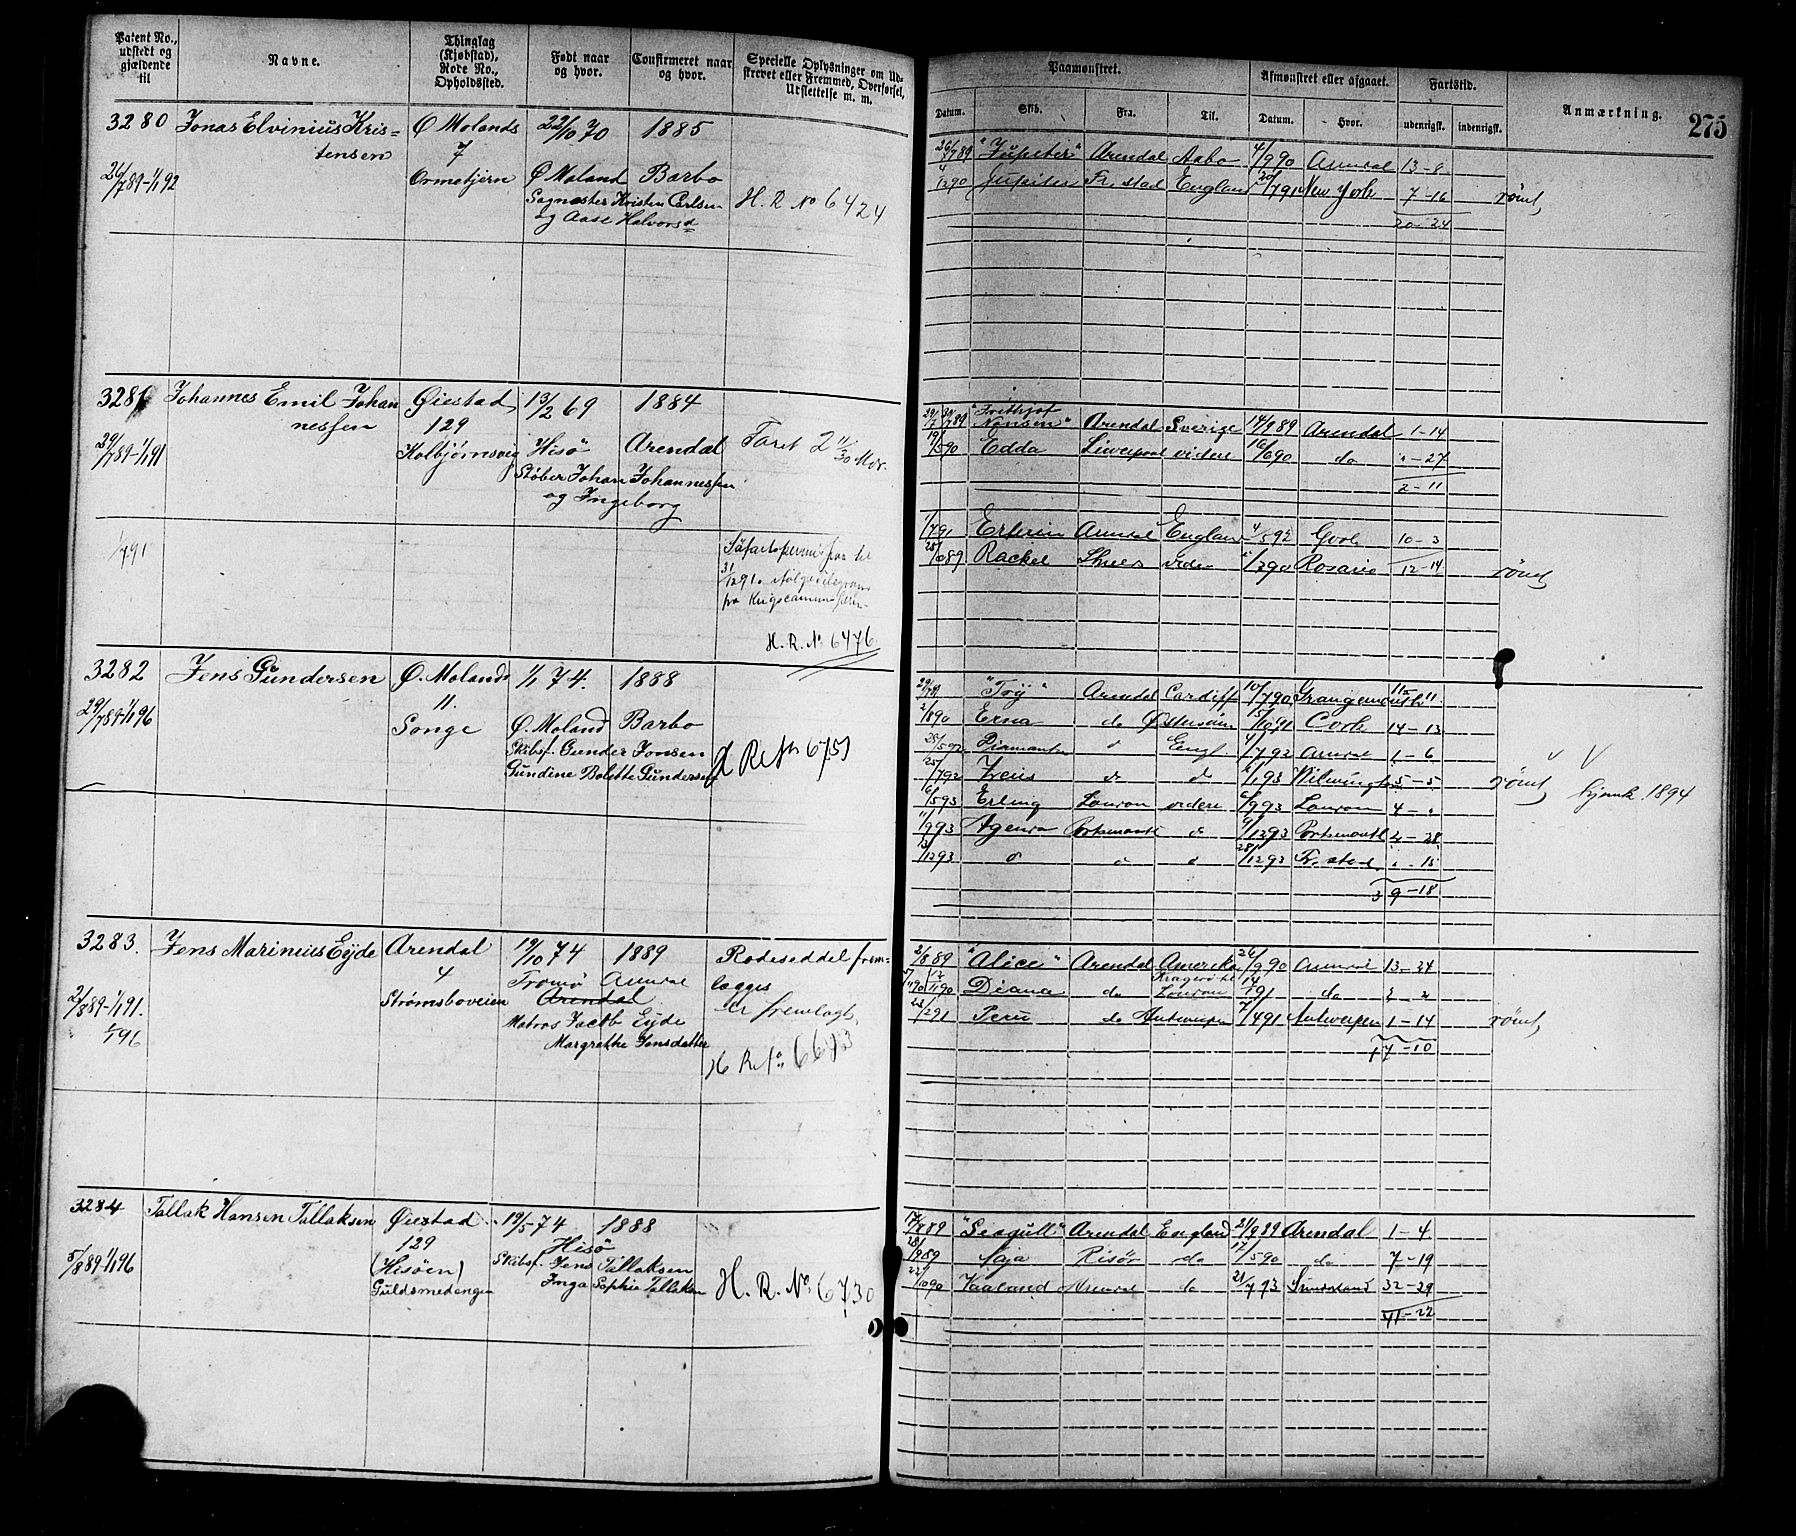 Patent No., udstedt og gjældende til
Navne.
Thinglag (Kjøbstad), Rode No., Opholdssted.
Født naar og hvor.
Confirmeret naar og hvor.
Specielle Oplysninger om Udskrevet eller Fremmed, Overførsel, Udslettelse m. m.
Paamønstret.
Afmønstret eller afgaaet.
Fartstid.
Anmærkning.
275
Datum. Skib. Fra. Til. Datum. Hvor. udenrigsk. indenrigsk.
3280 Jonas Elvinius Kris= Ø Molands 22/10 70 1885
tensen 7
26/7 89-1/1 92 Ormetjern Ø Moland Barbo
Sagmester Kristen Carlsen
og Aase Halvorsd
H. R. No 6424
26/7 89 "Jupiter" Arendal Aabo 4/9 90 Arendal 13-8
4/12 90 Jupiter Fr. stad England 20/7 91 New York 7-16 rømt
20-24
3281 Johannes Emil Johan Øiestad 13/2 69 1884
nessen 129
29/7 89-1/1 91 Kolbjørnsvig Hisö Arendal
Støber Johan Johannessen
og Ingeborg
Faret 2 11/30 Mdr.
1/7 91
31/12 91.
H. R. No 6476
"Frithjof
Nansen" Arendal Sverige 14/8 89 Arendal 1-14
19/5 90 Edda Liverpool videre 16/6 90 do "-27
2-11
1/7 91 Arendal England 4/5 92 10-3
Rackel videre Rosario 12-14 rømt
3282 Jens Gundersen Ø. Molands 1/1 74. 1888
11.
29/7 89-1/1 96 Songe Ø. Moland Barbo
Skibsf. Gunder Jonsen
Gundine Bolette Gundersen
29/7 89 "Troj" Arendal Cardiff 10/7 90 Grangemouth
2/8 90 Erna do Østersøen 15/10 91 Cork 14-13
25/5 92 Diamanten d Engl 4/7 92 Arendal 1-6
25/7 92 Zreus d d 2/1 93 Wilmington 5-5 rømt hjemk. 1894
16/5 93 Erling London videre 6/9 93 London 4-"
11/9 93 Agenor Portsmouth d 9/12 93 Portsmouth 2-28
13/12 93 d d d 28/12 93 Fr. stad "-15
39-18
3283. Jens Marinius Eyde Arendal 19/10 74 1889 Rodeseddel frem=
4 Tromø Arendal lægges
2/8 89-1/1 91. Strømsboveien Arendal er fremlagt,
1/1 96 Matros Jacob Eyde
Margrethe Jensdatter
2/8 89 "Alice" Arendal Amerika 26/9 90 Arendal 13-24
Diana do London do
Peru do Antwerpen 7/4 91 Antwerpen 1-14 rømt
17-10
3284 Tallak Hansen Tallaksen Øiestad 19/5 74 1888
129 Hisö
5/8 89-1/1 96 (Hisøen) Skibsf. Jens Tallaksen
Guldsmedengen Inga Sophie Tallaksen
H. R. No 6730
17/8 89 "Seagull" Arendal England 21/9 89 Arendal 1-4
28/9 89 Maja Risør do 17/5 90 do 7-19
22/10 90 Vaaland Arendal do 21/7 93 Sunderland 32-29
41-22